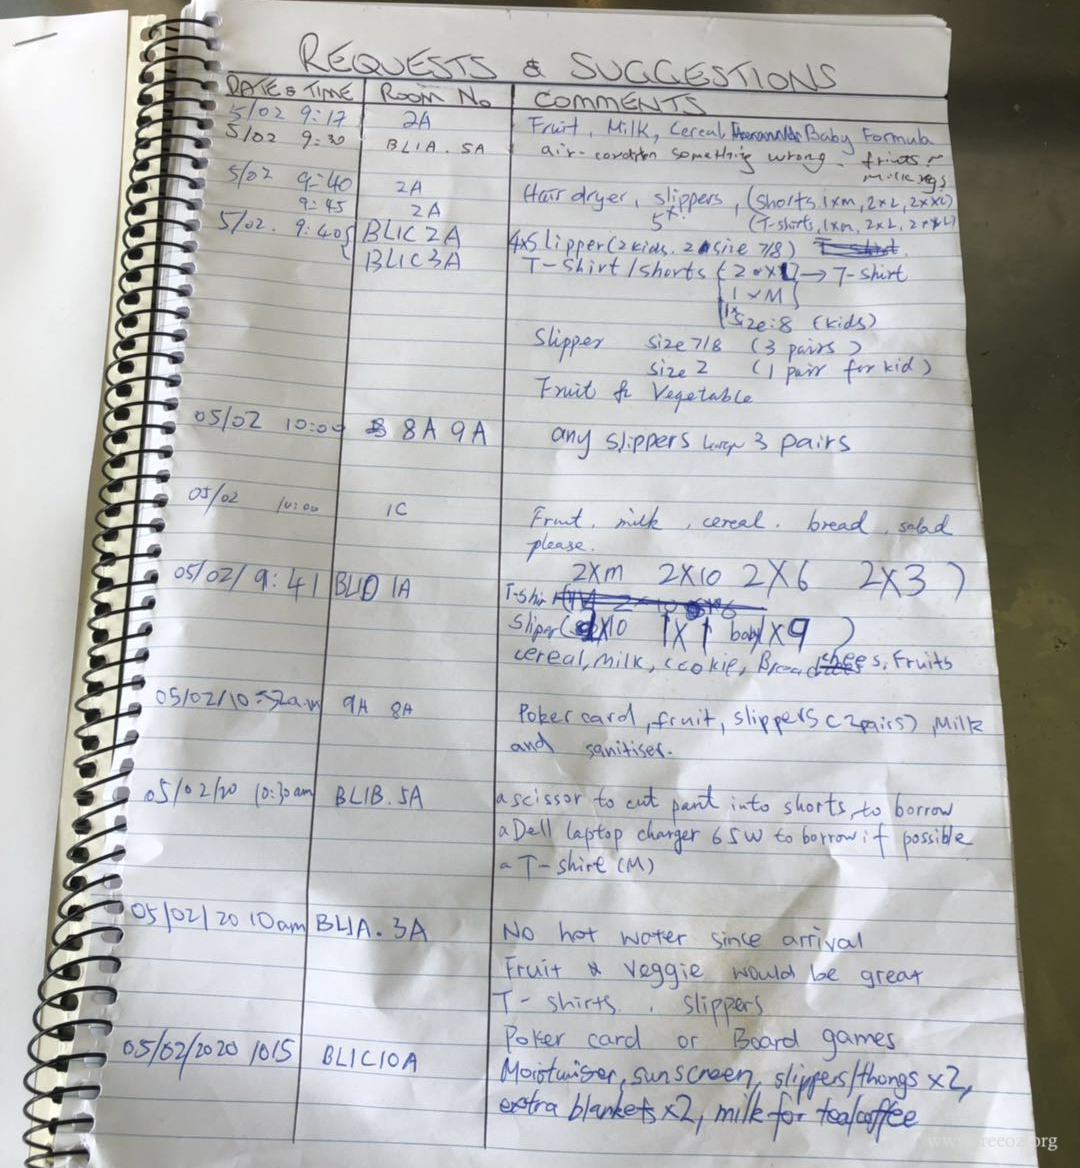 REQUESTS & SUGGESTIONS
DATE & TIME ROOM No COMMENTS
5/02 9:17 2A Fruit, Milk, Cereal, Baby Formula
5/02 9:30 BL1A. 5A air-condition something wrong. fruits
milk
5/02 9:40 2A Hair dryer, slippers, (shorts 1xm, 2x2, 2xXL)
9:45 2A 5x (T-shirts, 1xm, 2x2,
5/02. 9:40 BL1C 2A 4xSlipper (2 kids. 2 size 7/8)
BL1C 3A T-shirt/shorts → T-shirt
1 x M
size: 8 (kids)
Slipper size 7/8 (3 pairs)
size 2 (1 pair for kid)
Fruit & Vegetable
05/02 10:00 8A 9A any slippers large 3 pairs
05/02 10:00 1C Fruit. milk, cereal. bread, salad
please.
2Xm 2X10 2X6 2X3)
05/02/9:41 BL1D 1A T-shir
Sliper( X10 1X1 baby X9)
cereal, Milk, cookie, Bread, Fruits
05/02/10:52am 9A 8A Poker card, fruit, slippers (2pairs), Milk
and sanitiser.
05/02/20 10:30am BL1B. 5A a scissor to cut pant into shorts, to borrow
a Dell laptop charger 65W to borrow if possible
a T-shirt (M)
05/02/20 10am BL1A. 3A No hot water since arrival
Fruit & Veggie would be great
T-shirts, slippers
Poker card or Board games
05/02/2020 1015 BL1C10A Moisturiser, sunscreen, slippers/thongs x2,
extra blankets x2, milk for tea/coffee